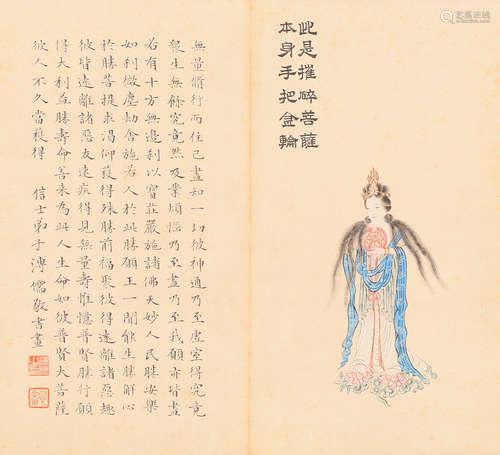 此是摧碎菩薩
本身手把金輪
無量脩行而住已盡如一切彼神通乃至虛空得究竟
眾生無餘究竟然及業煩惱乃至盡乃至我願亦皆盡
若有十方無邊刹以寶莊嚴施諸佛天妙人民勝安樂
如刹微塵劫舍施若人於此勝願王一聞能生勝解心
於勝菩提求渴仰獲得殊勝前福聚彼得遠離諸惡趣
彼皆遠離諸惡友速疾得見無量壽惟憶普賢勝行願
得大利益勝壽命善來為此人生命如彼普賢大菩薩
彼人不久當獲得 信士弟子溥儒敬書畫